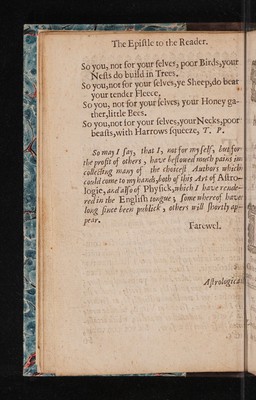 The Epiſtle to the Reader.
So you, not for your ſelves, poor Birds, your
Neſts do build in Trees.
So you, not for your ſelves, ye Sheep, do bear
your tender Fleece.
So you, not for your ſelves, your Honey ga-
ther, little Bees.
So you, not for your ſelves, your Necks, poor
beaſts, with Harrows ſqueeze, T. P.
So may I ſay, that I, not for my ſelf, but for
the profit of others, have beſtowed much pains in
collecting many of the choiceſt Authors which
could come to my hands, both of this Art of Aſtro-
logie, and alſo of Phyſick, which I have rende-
red in the Engliſh tongue; ſome whereof have
long ſince been publick, others will ſhortly ap-
pear.
Farewel.
Aſtrologica